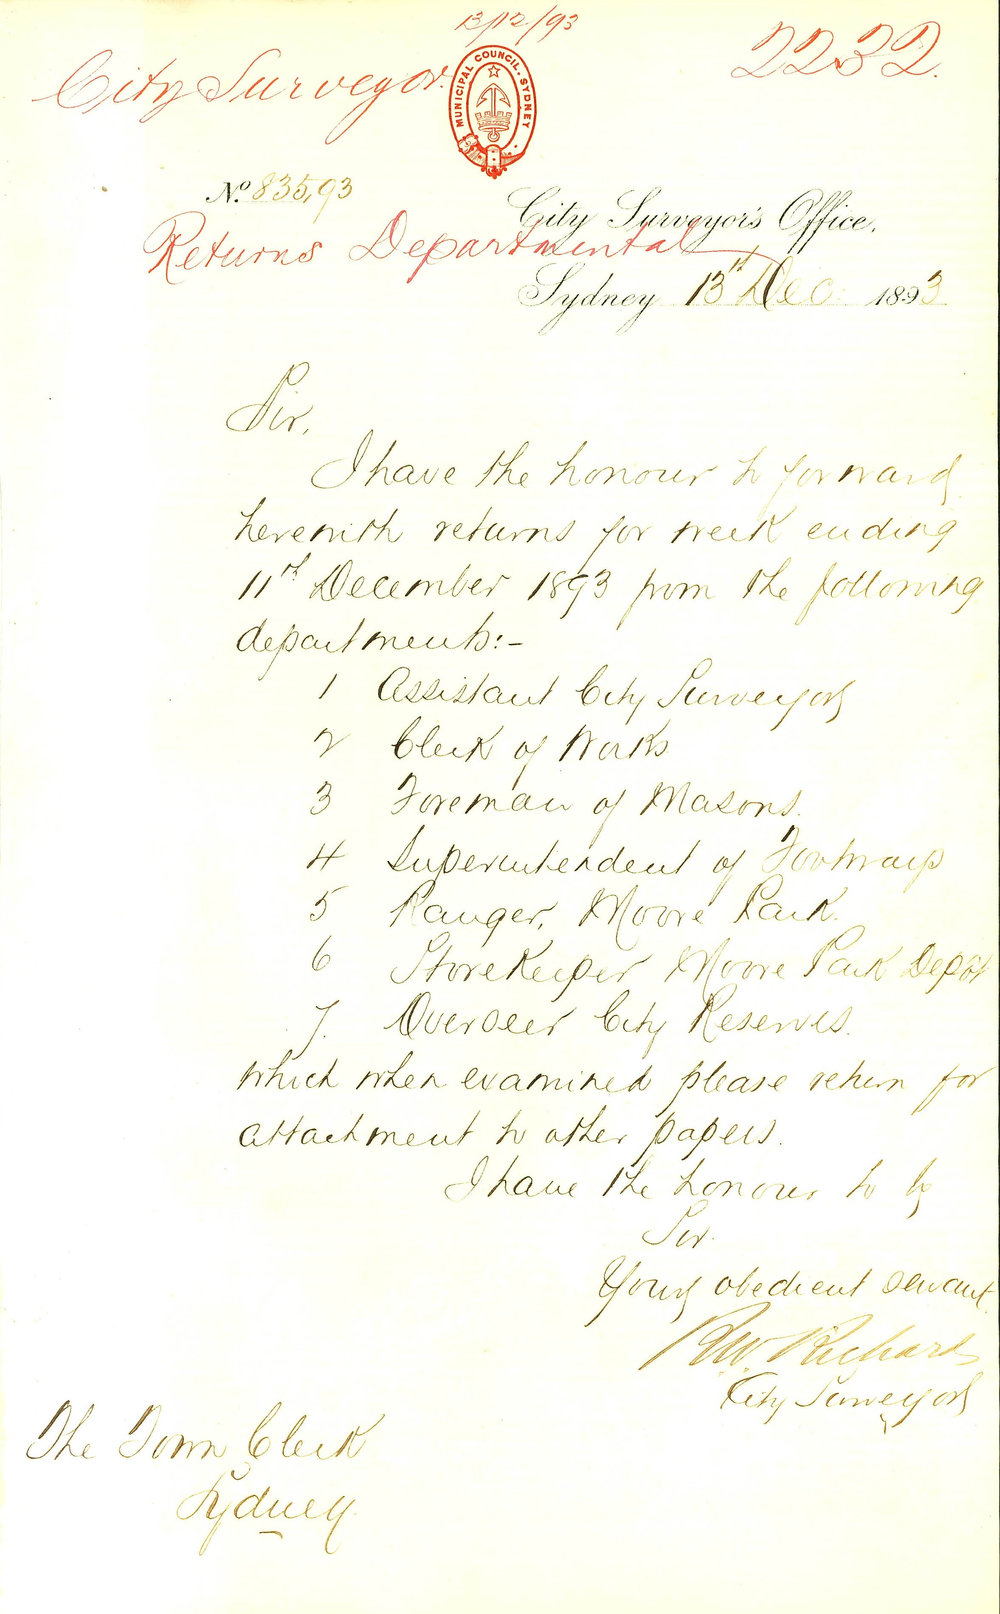 13/12/93
City Surveyor.
2232.
MUNICIPAL COUNCIL. SYDNEY
No. 835,93
City Surveyor's Office,
Returns Departmental
Sydney 13th Dec: 1893
Sir,
I have the honour to forward
herewith returns for week ending
11th December 1893 from the following
departments:-
1 Assistant City Surveyors
2 Clerk of Works
3 Foreman of Masons.
4 Superintendent of Footways
5 Ranger, Moore Park.
6 Storekeeper Moore Park Depôt
7. Overseer City Reserves.
which when examined please return for
attachment to other papers.
I have the honour to be
Sir.
Your obedient servant.
R.W. Richards
City Surveyor
The Town Clerk
Sydney